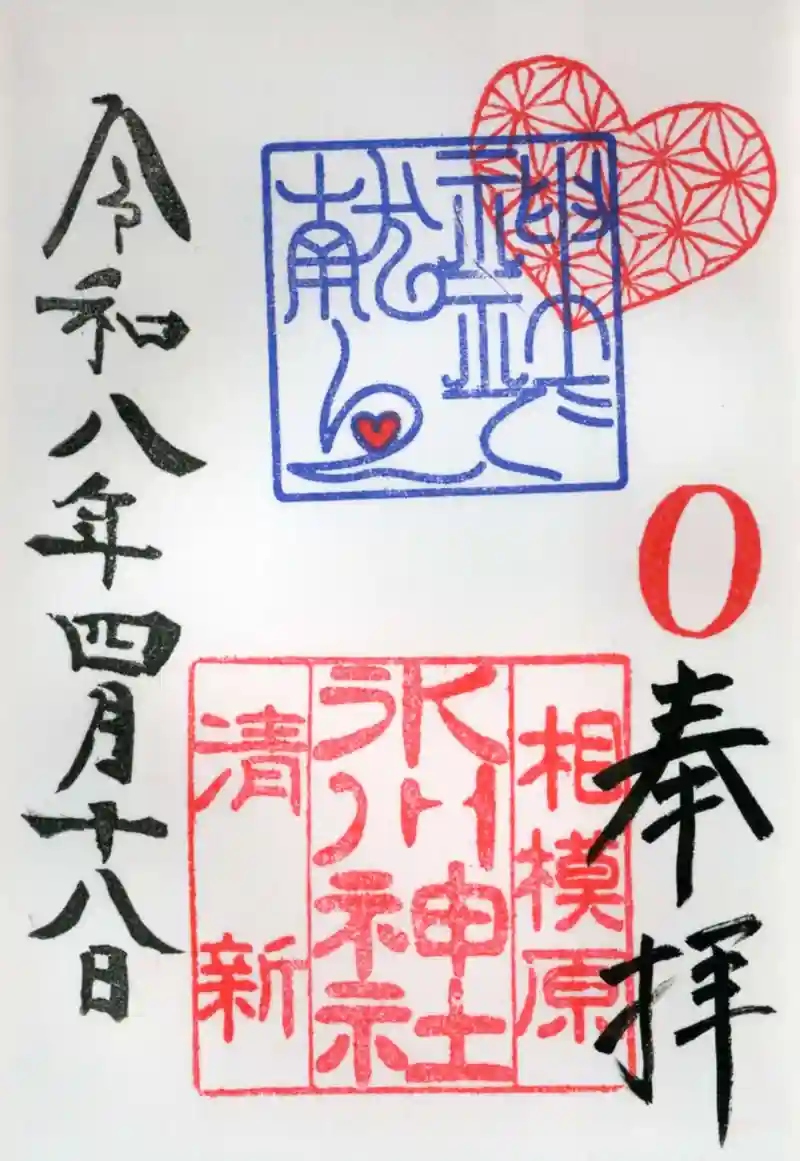 O
奉拝
神社で
献血
相模原
氷川神社
清新
令和八年四月十八日